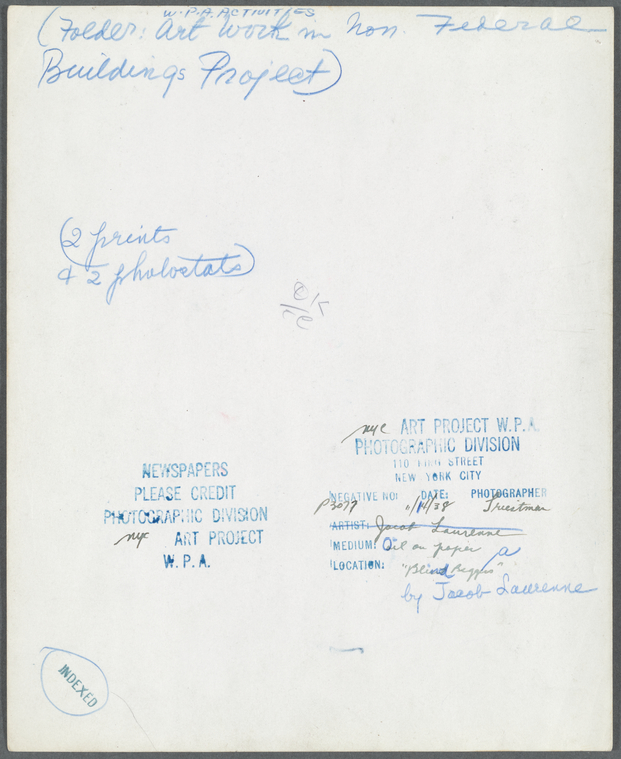 W.P.A. ACTIVITIES
(Folder: Art Work in Non Federal
Buildings Project)
(2 prints
& 2 photostats)
OK
NEWSPAPERS
PLEASE CREDIT
PHOTOGRAPHIC DIVISION
nyc ART PROJECT
W.P.A.
nyc ART PROJECT W.P.A.
PHOTOGRAPHIC DIVISION
110 KING STREET
NEW YORK CITY
NEGATIVE NO: DATE: PHOTOGRAPHER
P3077 11/14/38 Treistman
ARTIST: Jacob Laurenne
MEDIUM: Oil on paper
LOCATION: "Blind Beggars"
by Jacob Laurenne
INDEXED